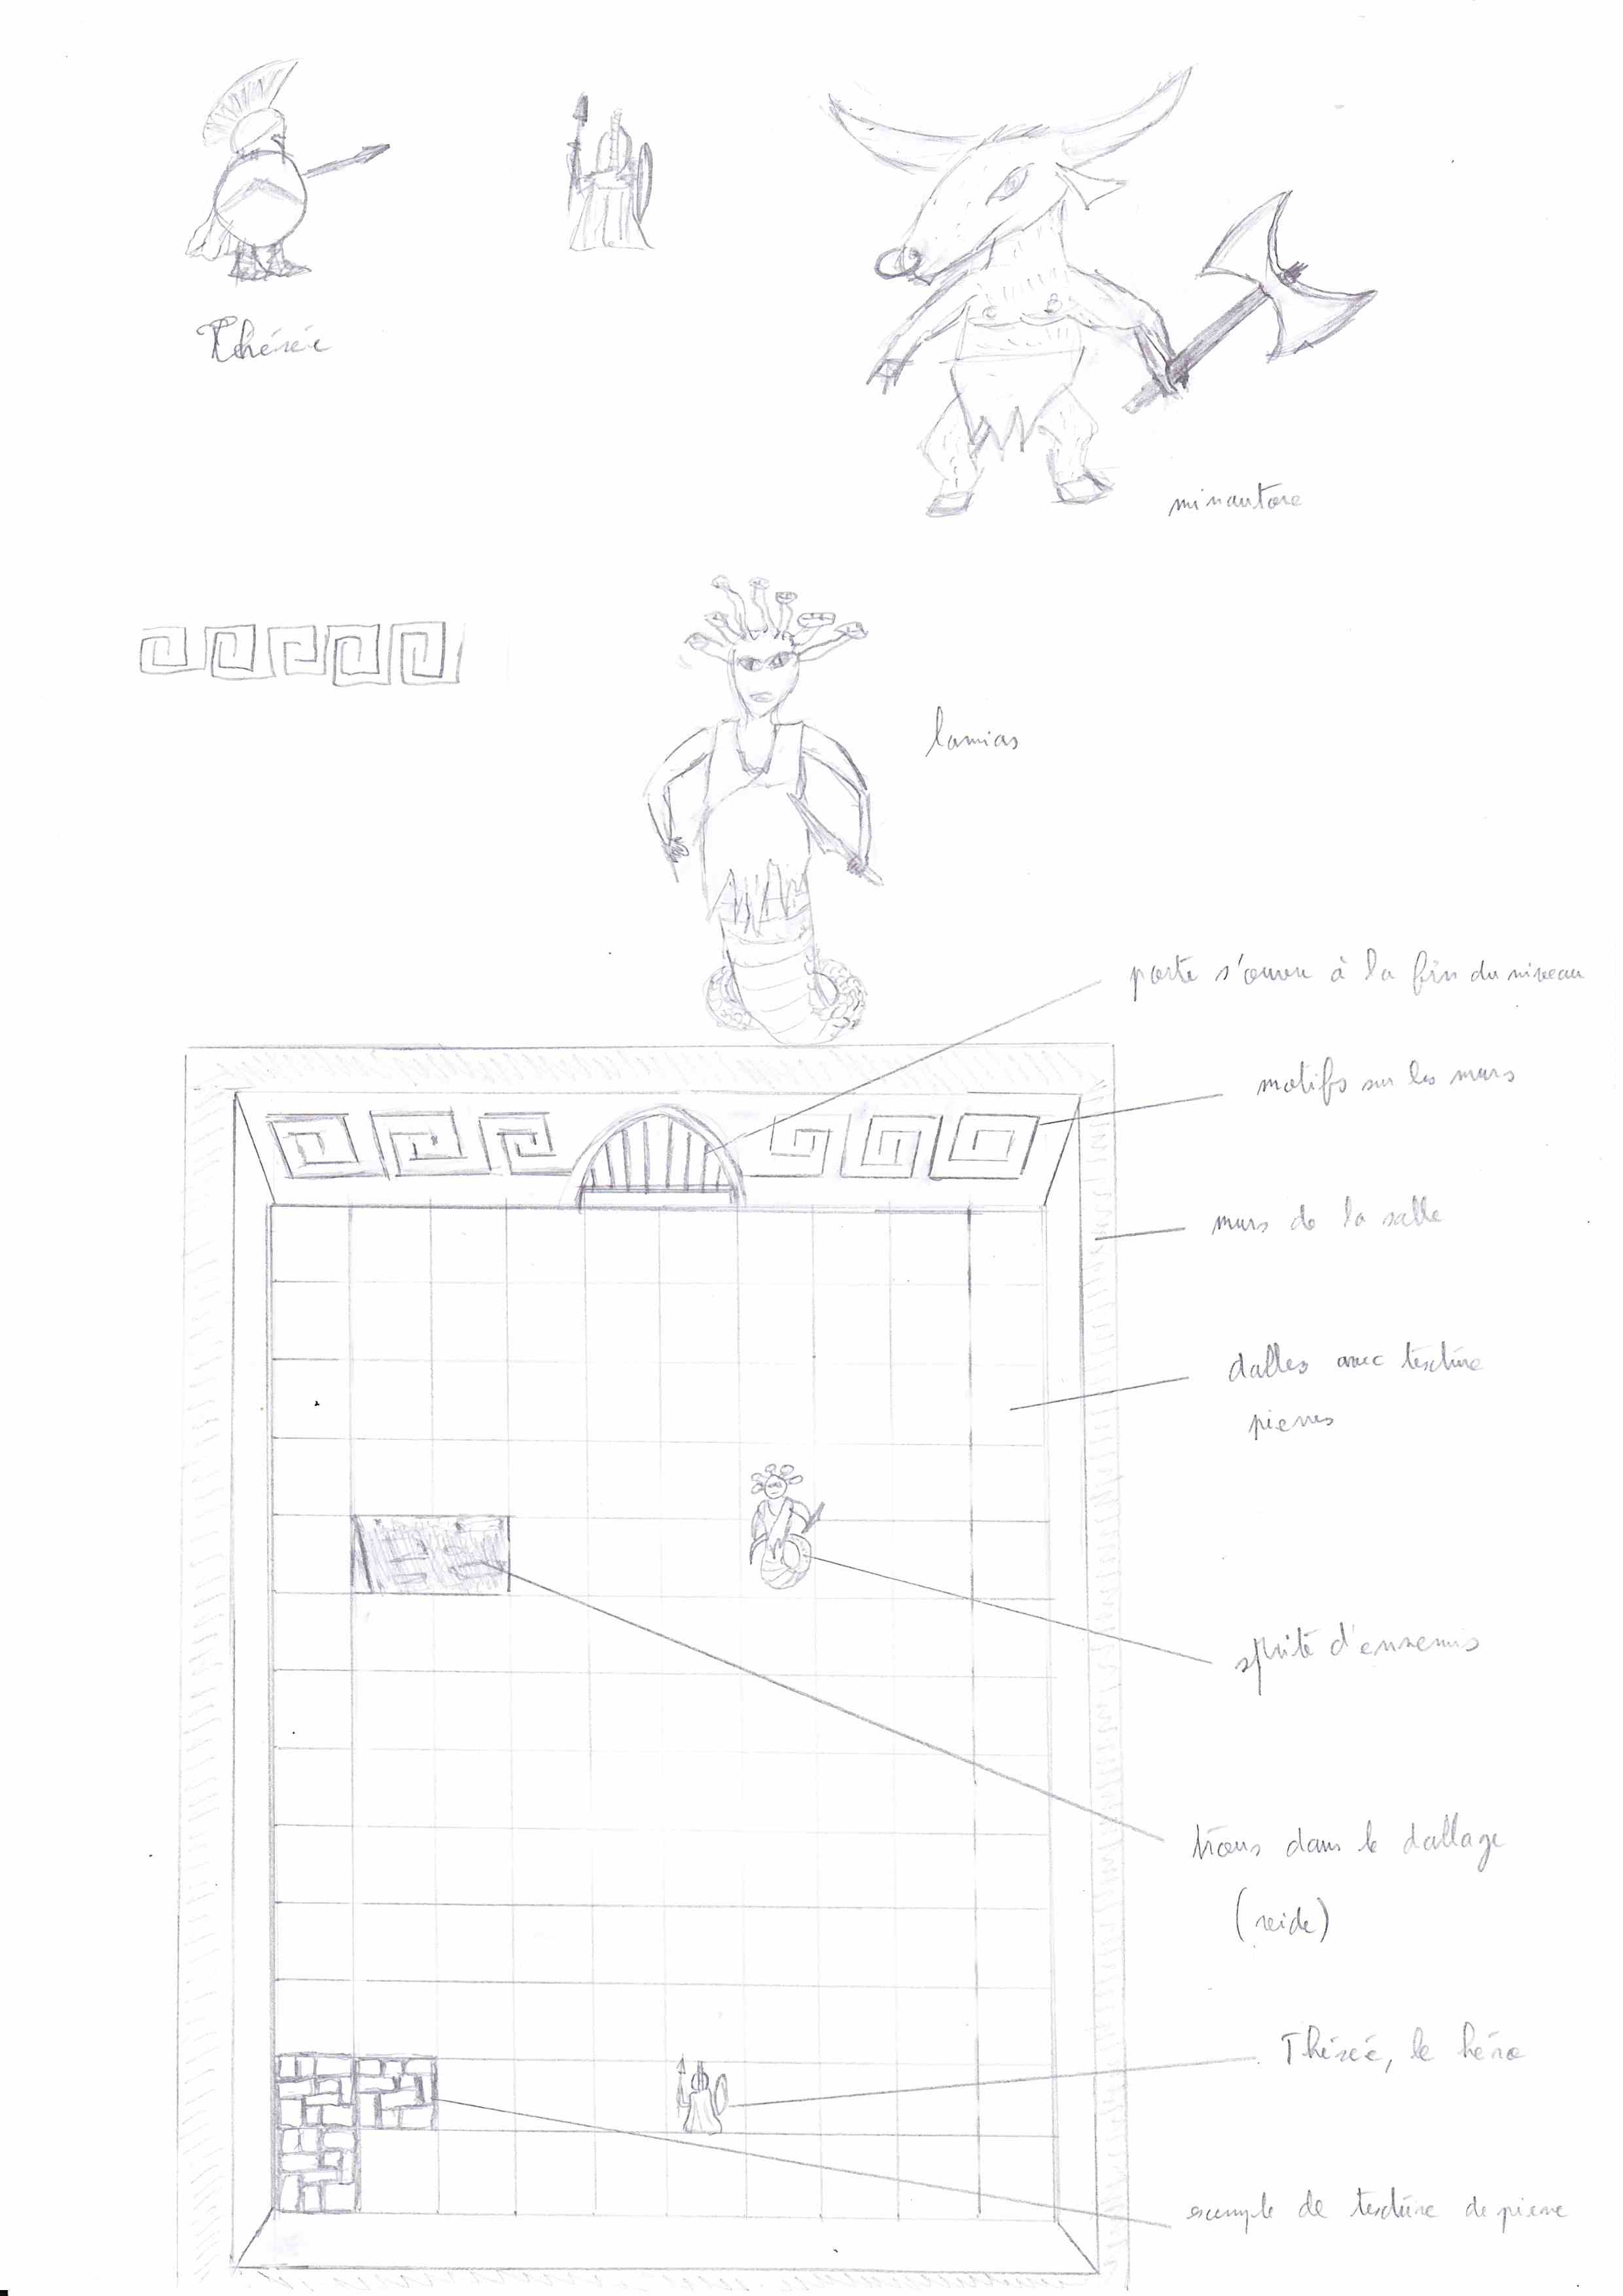 Thésée
minautore
lamias
porte s'ouvre à la fin du niveau
motifs sur les murs
murs de la salle
dalles avec texture
pierres
sprite d'ennemis
trous dans le dallage
(veide)
Thésée, le héro
exemple de texture de pierre